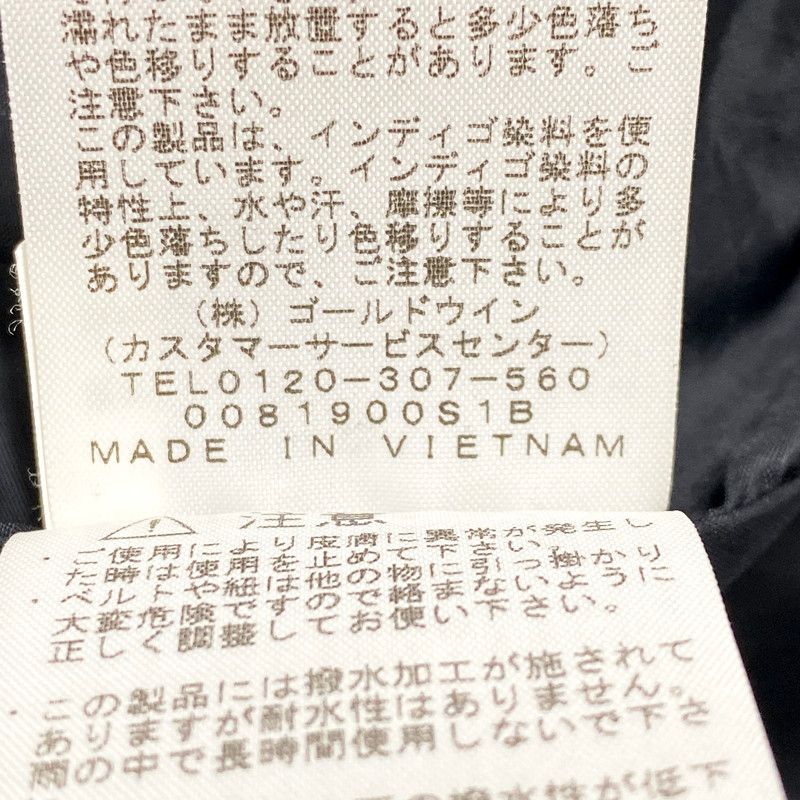 濡れたまま放置すると多少色落ち
や色移りすることがあります。ご
注意下さい。
この製品は、インディゴ染料を使
用しています。インディゴ染料の
特性上、水や汗、摩擦等により多
少色落ちしたり色移りすることが
ありますので、ご注意下さい。
(株)ゴールドウイン
(カスタマーサービスセンター)
TEL0120-307-560
0081900S1B
MADE IN VIETNAM
注意
・ご使用により皮膚に異常が発生し
た時は使用を止めて下さい。
・ベルトや紐は他の物に引っ掛かり
大変危険ですので絡まないように
正しく調整してお使い下さい。
・この製品には撥水加工が施されて
ありますが耐水性はありません。
雨の中で長時間使用しないで下さ
の撥水性が低下